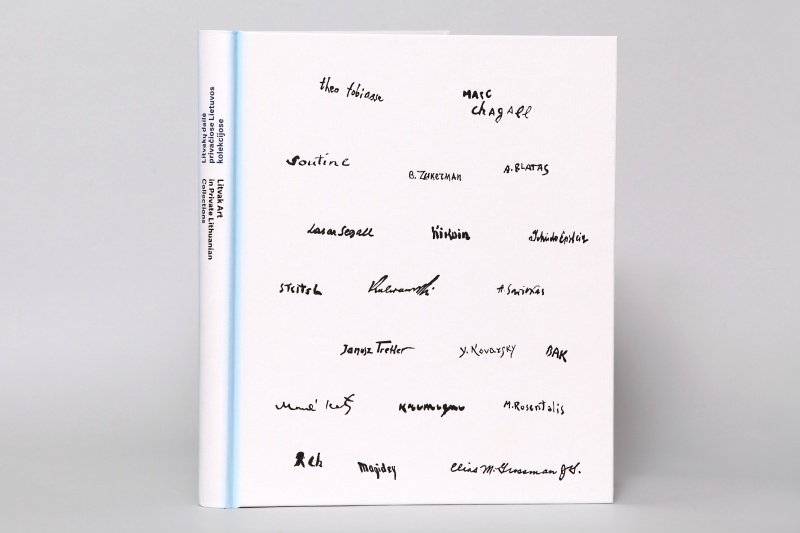 Litvakų dailė
privačiose Lietuvos
kolekcijose
Litvak Art
in Private Lithuanian
Collections
theo tobiasse
MARC
chagall
Soutine
B. Zukerman
A. BLATAS
Lasar Segall
Kikoïn
Jehudo Epstein
Janusz Tretter
Y. Kovarsky
BAK
Mané Katz
M. Rosentalis
Magidey
Elias M. Grossman